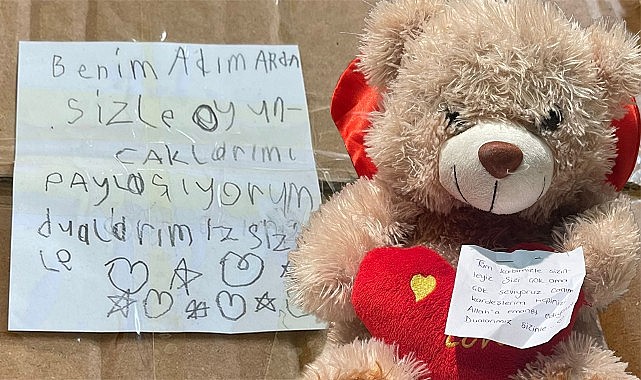 Benim Adım ARdA
sizle oyun-
cAKlarımı
pAylaşıyorum
dualarımız sizi
le
Tüm kalbimizle sizin-
leyiz Sizi çok ama
çok seviyoruz
kardeşlerim Hepinizi
Allah'a emanet
Dualarımız Sizinle
LOVE